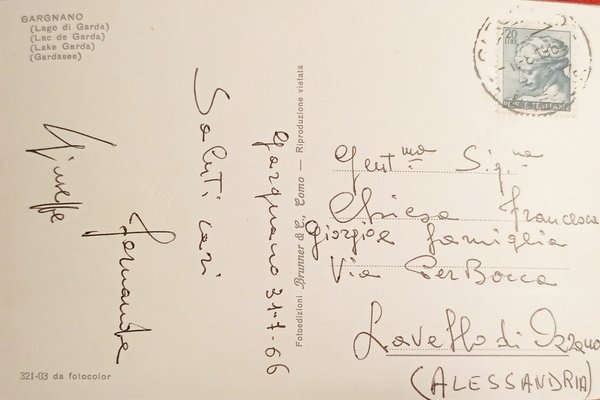 GARGNANO
(Lago di Garda)
(Lac de Garda)
(Lake Garda)
(Gardasee)
Gargnano 31-7-66
Saluti cari
Fernanda
Giuseppe
321-03 da fotocolor
Fotoedizioni Brunner & C., Como — Riproduzione vietata
20
LIRE
POSTE ITALIANE
Gent.ma Sig.na
Chiesa Francesca
Giorgio e famiglia
Via Per Bocca
(ALESSANDRIA)